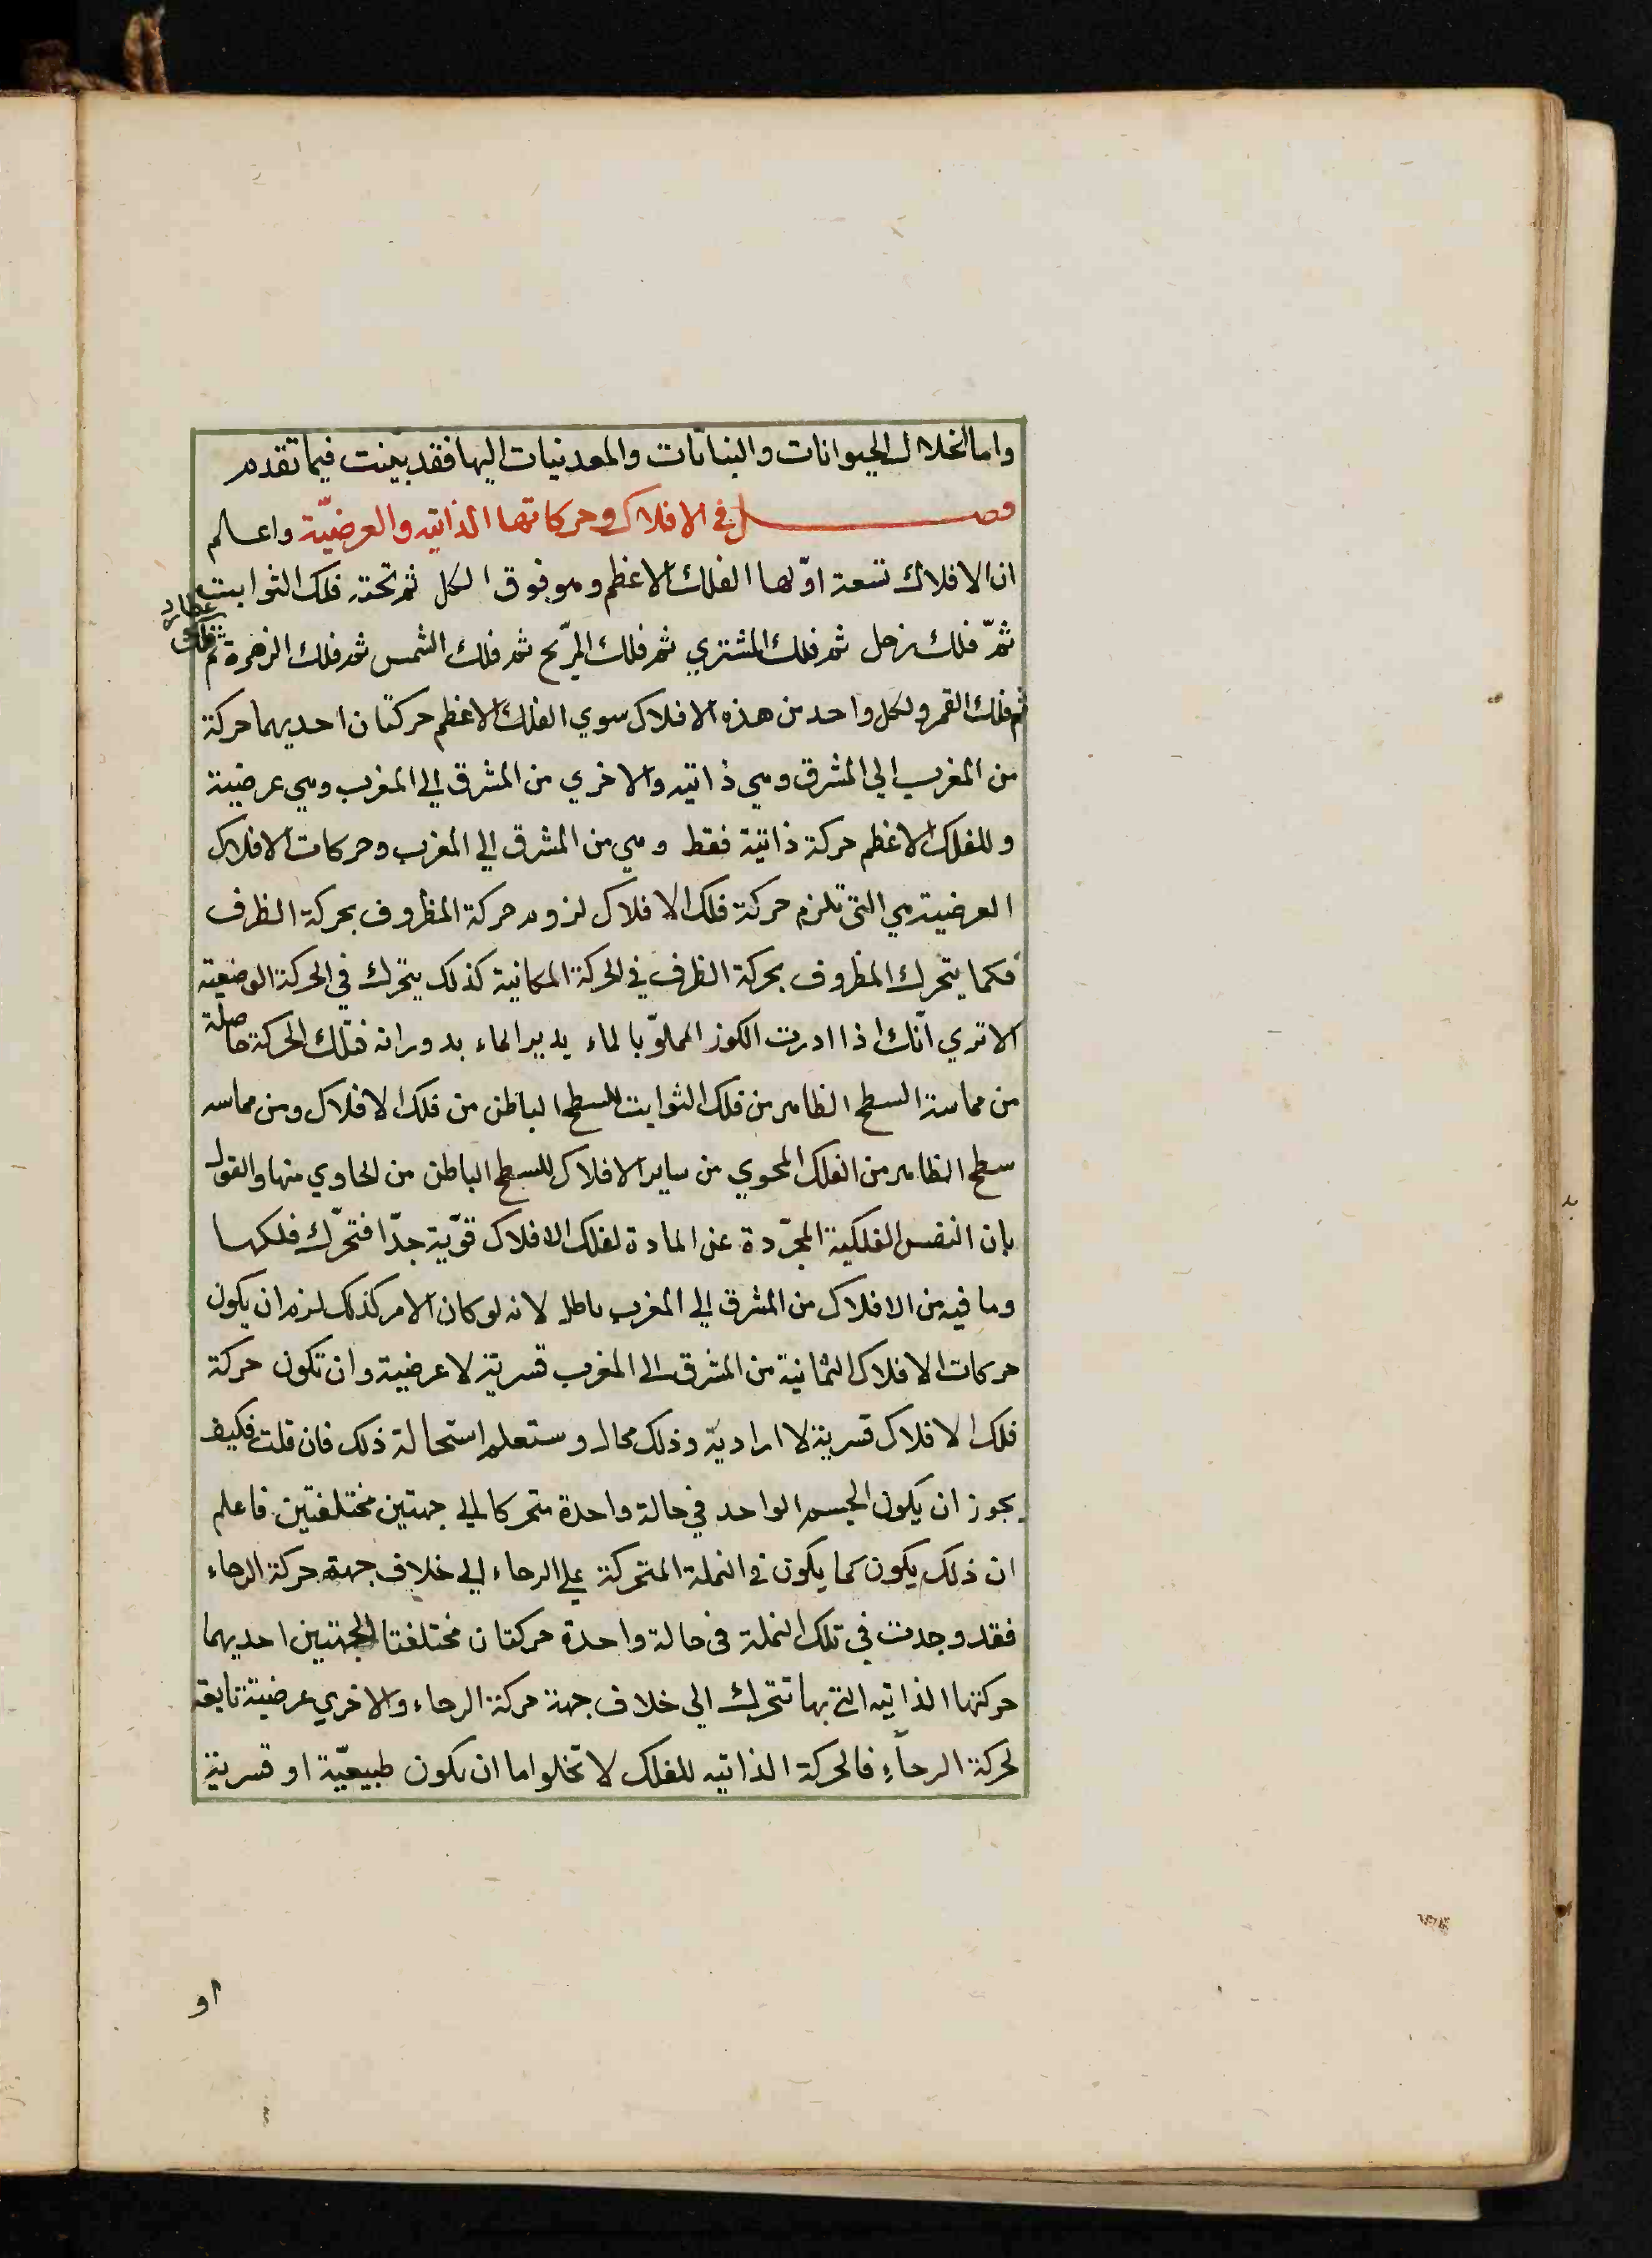 واما انحلال الحيوانات والنباتات والمعدنيات اليها فقد بينت فيما تقدم
فصل في الافلاك وحركاتها الذاتيه والعرضيّة واعلم
ان الافلاك تسعة اوّلها الفلك الاعظم وهو فوق الكل ثم تحته فلك الثوابت
ثمّ فلك زحل ثم فلك المشتري ثم فلك المرّيخ ثم فلك الشمس ثم فلك الزهرة ثم
فلك عطارد
ثم فلك القمر ولكل واحد من هذه الافلاك سوي الفلك الاعظم حركتان احديهما حركة
من المغرب الي المشرق وهي ذاتيه والاخري من المشرق الي المغرب وهي عرضية
وللفلك الاعظم حركة ذاتية فقط وهي من المشرق الي المغرب وحركات الافلاك
العرضية هي التي تلزم حركة فلك الافلاك لزوم حركة المظروف بحركة الظرف
فكما يتحرك المظروف بحركة الظرف في الحركة المكانية كذلك يتحرك في الحركة الوضعية
الا تري انّك اذا ادرت الكوز المملوّ بالماء يدير الماء بدورانه فتلك الحركة حاصلة
من مماسة السطح الظاهر من فلك الثوابت للسطح الباطن من فلك الافلاك ومن مماسه
سطح الظاهر من الفلك المحوي من ساير الافلاك للسطح الباطن من الحاوي منها والقول
بان النفس الفلكية المجرّدة عن المادة لفلك الافلاك قويّة جدّا فتحرّك فلكها
وما فيه من الافلاك من المشرق الي المغرب باطل لانه لو كان الامر كذلك لزم ان يكون
حركات الافلاك الثمانية من المشرق الى المغرب قسرية لا عرضية وان تكون حركة
فلك الافلاك قسرية لا اراديّة وذلك محال وستعلم استحالة ذلك فان قلت فكيف
يجوز ان يكون الجسم الواحد في حالة واحدة متحركا الي جهتين مختلفتين فاعلم
ان ذلك يكون كما يكون في النملة المتحركة علي الرحاء الي خلاف جهة حركة الرحاء
فقد وجدت في تلك النملة في حالة واحدة حركتان مختلفتا الجهتين احديهما
حركتها الذاتيه التي بها تتحرك الي خلاف جهة حركة الرحاء والاخري عرضية تابعة
لحركة الرحآء فالحركة الذاتيه للفلك لا تخلوا اما ان تكون طبيعيّة او قسرية
او